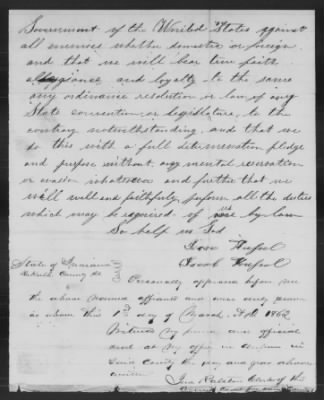 Government of the United States against
all enemies whether domestic or foreign
and that we will bear true faith
allegiance and loyalty to the same
any ordinance resolution or law of any
State convention or legislature to the
contrary notwithstanding, and that we
do this with a full determination pledge
and purpose without any mental reservation
or evasion whatsoever and further that we
will well and faithfully perform all the duties
which may be required of us by law
So help us God
Jacob
State of Indiana
County SS
Personally appeared before me
the above named affiants and were duly sworn
in whom this 1st day of March A.D. 1862
Witness my hand and official
seal at my office in
County the day and year above
written
Clerk of the